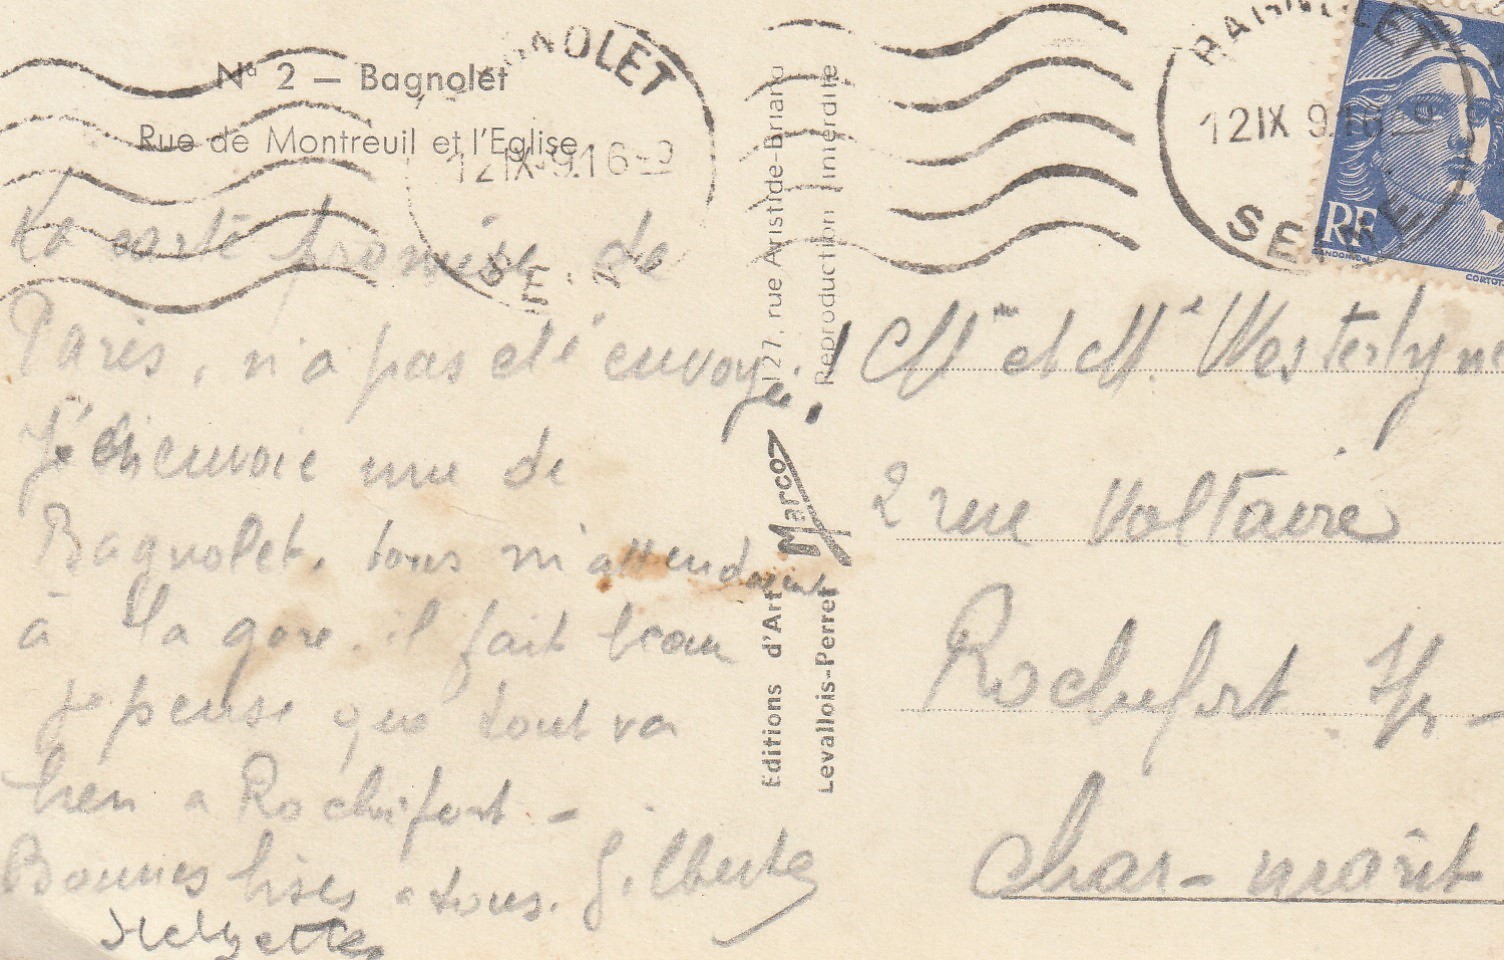 N° 2 — Bagnolet
Rue de Montreuil et l'Eglise
BAGNOLET
12 IX 9.16
SEINE
BAGNOLET
12 IX 9.16
SEINE
RF
GANDON
CORTOT
La carte promise de
Paris, n'a pas été envoyée!
Je envoie une de
Bagnolet. tous m'attendaient
à la gare. il fait beau
je pense que tout va
bien a Rochefort —
Bonnes bises a tous. Gilberte
Editions d'Art Marco 127, rue Aristide-Briand
Levallois-Perret Reproduction interdite
Mme et M.
2 rue Voltaire
Rochefort s/m —
Char-marit